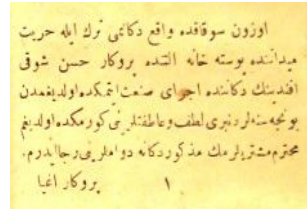 اوزون سوقاقده واقع دكانمی ترك ایله حریت
میداننده پوسته خانه التنده پروكار حسن شوقی
افندینك دكاننده اجرای صنعت اتمكده اولدیغمدن
بونجه سنه لردنبری لطف وعاطفتلرینی كورمكده اولدیغم
محترم مشتریلرمك مذكور دكانه دواملرینی رجا ایدرم.
۱ پروكار اغیا